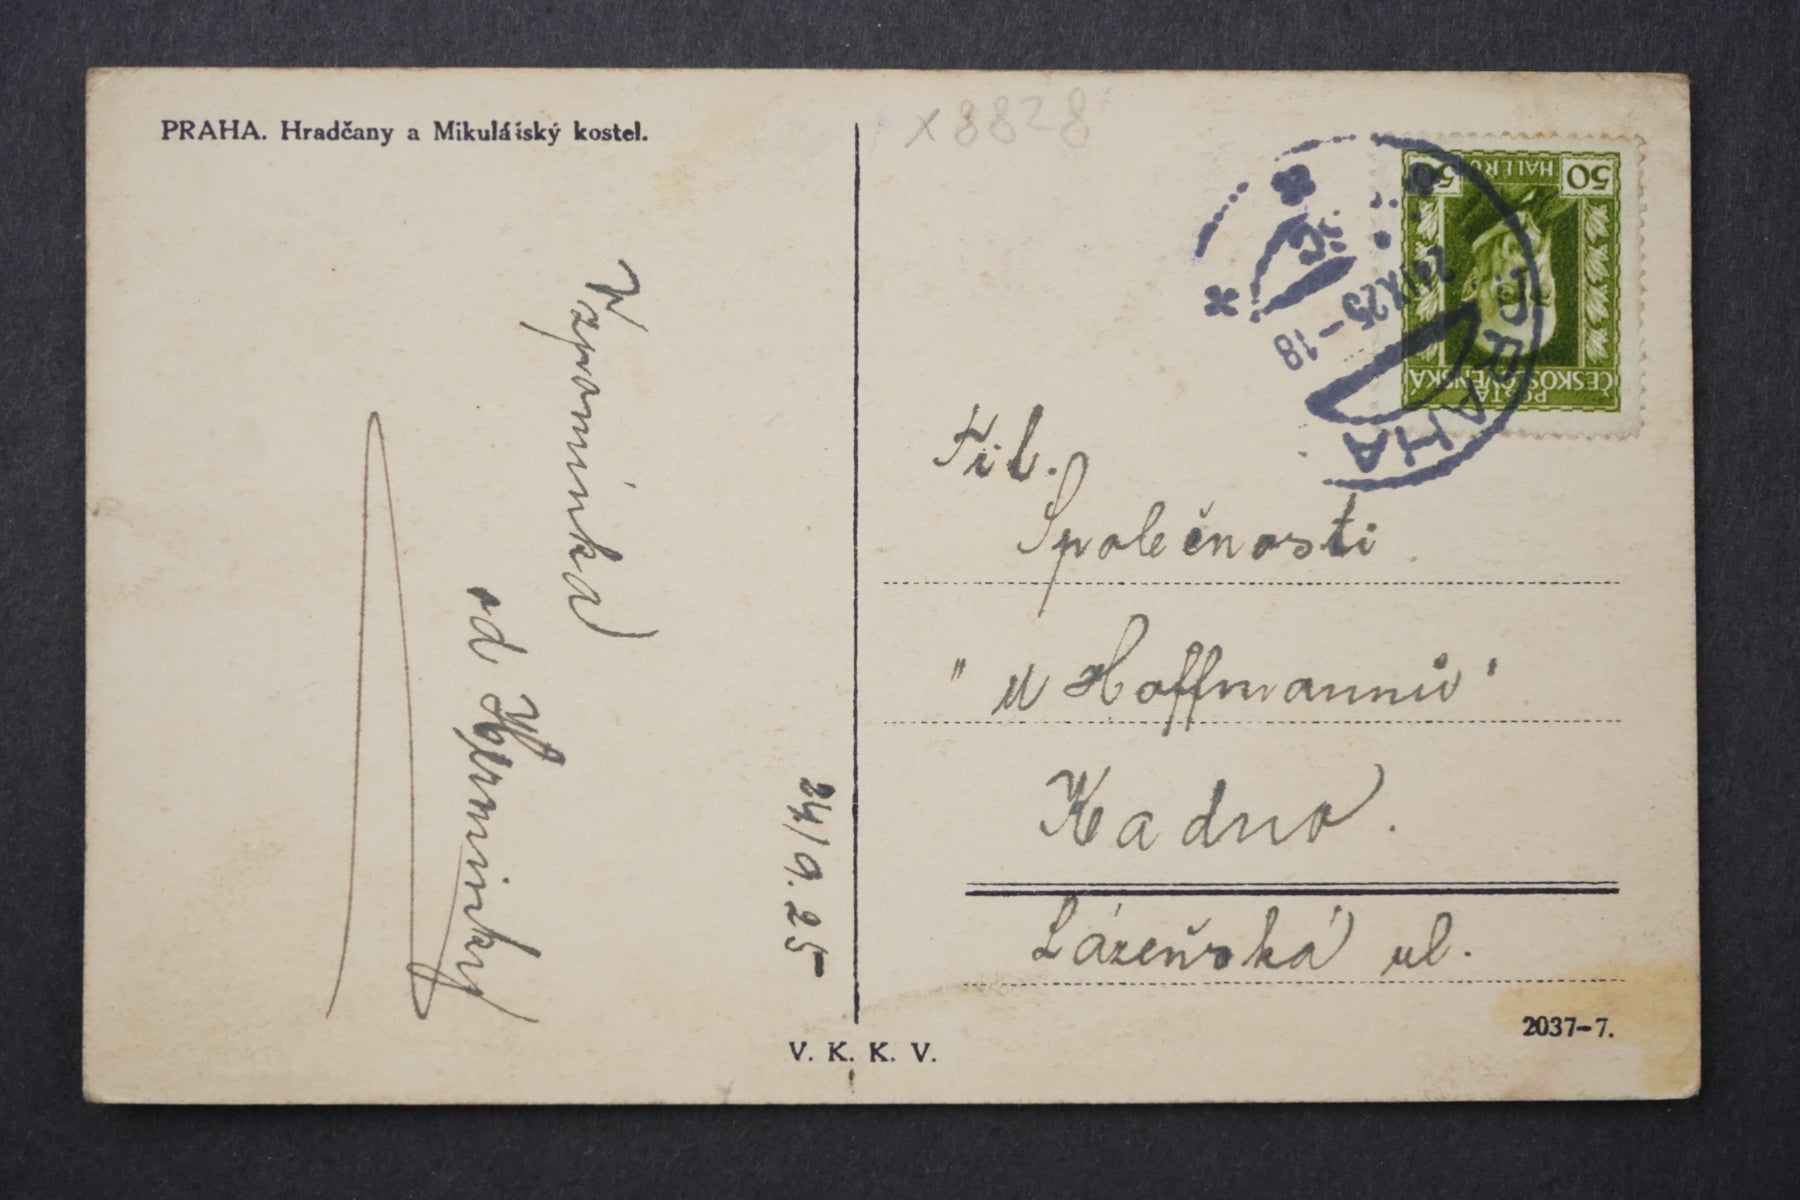 PRAHA. Hradčany a Mikulášský kostel.
x 8828
Vzpomínka
od
24/9.25
50 HALÉŘŮ 50
POŠTA
ČESKOSLOVENSKÁ
PRAHA
24.IX.25 -18
Fil.
Společnosti
" u Hoffmannů "
Kadno.
Lázeňská ul.
2037-7.
V. K. K. V.